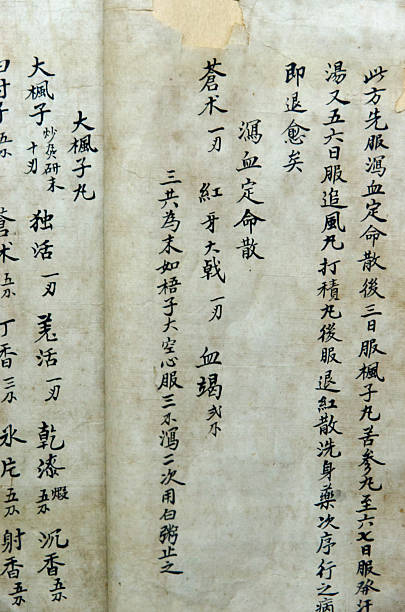 此方先服瀉血定命散後三日服楓子丸苦参丸至六七日服發汗
湯又五六日服追風丸打積丸後服退紅散洗身藥次序行之病
即退愈矣
瀉血定命散
蒼术一刃 紅牙大戟一刃 血竭弍尒
三共為末如梧子大空心服三尒瀉二次用白粥止之
大楓子丸
大楓子炒炙研末十刃 独活一刃 羌活一刃 乾漆煅五尒 沉香五尒
付子五尒 蒼术五尒 丁香三尒 氷片五尒 射香五尒